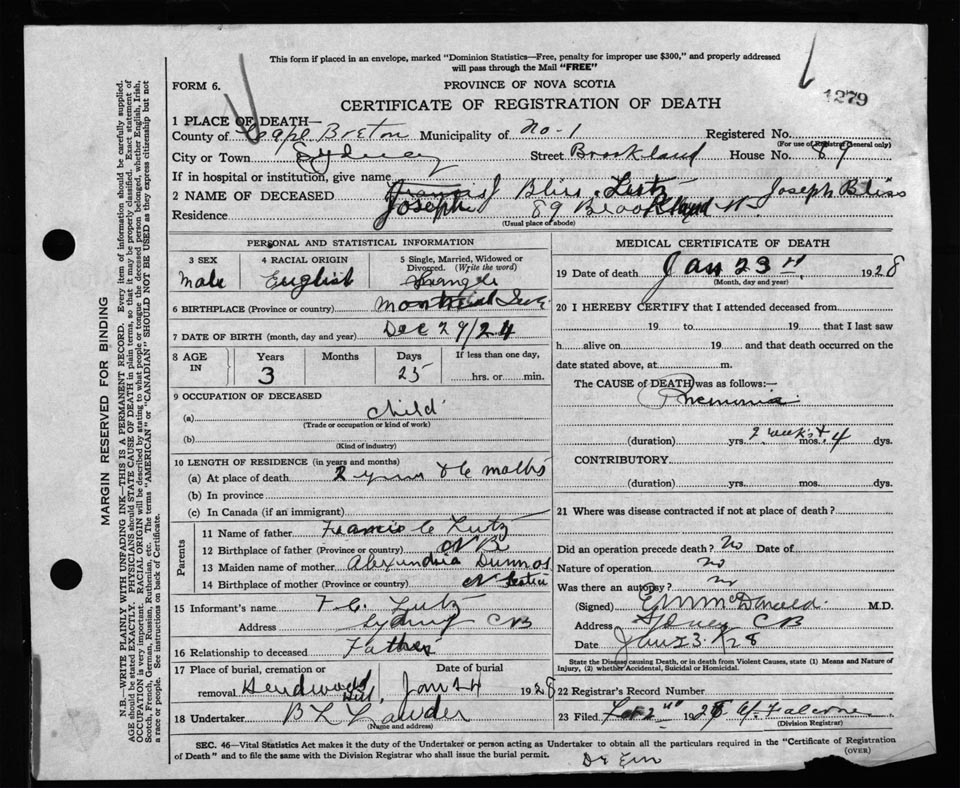 This form if placed in an envelope, marked "Dominion Statistics—Free, penalty for improper use $300," and properly addressed
will pass through the Mail "FREE"
FORM 6.
PROVINCE OF NOVA SCOTIA
1279
CERTIFICATE OF REGISTRATION OF DEATH
1 PLACE OF DEATH—
County of Cape Breton Municipality of No-1 Registered No.
(For use of Registrar General only)
City or Town Sydney Street Brookland House No. 89
If in hospital or institution, give name
2 NAME OF DECEASED Francis J Bliss Lutz Joseph Bliss
Joseph
Residence 89 Brookland St
(Usual place of abode)
PERSONAL AND STATISTICAL INFORMATION
3 SEX
Male
4 RACIAL ORIGIN
English
5 Single, Married, Widowed or Divorced. (Write the word)
Single
6 BIRTHPLACE (Province or country) Montreal
7 DATE OF BIRTH (month, day and year) Dec 29/24
8 AGE IN Years Months Days If less than one day,
3 25 hrs. or min.
9 OCCUPATION OF DECEASED
(a) Child
(Trade or occupation or kind of work)
(b)
(Kind of industry)
10 LENGTH OF RESIDENCE (in years and months)
(a) At place of death 2 years & 6 moths
(b) In province
(c) In Canada (if an immigrant)
Parents
11 Name of father Francis C Lutz
12 Birthplace of father (Province or country) N B
13 Maiden name of mother Alexundria
14 Birthplace of mother (Province or country) N Scotia
15 Informant's name F C. Lutz
Address Sydney CB
16 Relationship to deceased Father
17 Place of burial, cremation or removal Hardwood Hill Date of burial Jan 24 1928
18 Undertaker B L Lauder
(Name and address)
MEDICAL CERTIFICATE OF DEATH
19 Date of death Jan 23rd 1928
(Month, day and year)
20 I HEREBY CERTIFY that I attended deceased from
19 to 19 that I last saw
h alive on 19 and that death occurred on the
date stated above, at m.
The CAUSE of DEATH was as follows:—
Pnemonia
2 weeks + 4
(duration) yrs. mos. dys.
CONTRIBUTORY
(duration) yrs. mos. dys.
21 Where was disease contracted if not at place of death?
Did an operation precede death? No Date of
Nature of operation No
Was there an autopsy? No
(Signed) McDonald M.D.
Address Sydney CB
Date Jan 23/28
State the Disease causing Death, or in death from Violent Causes, state (1) Means and Nature of Injury, (2) whether Accidental, Suicidal or Homicidal.
22 Registrar's Record Number
23 Filed Feb 2nd 1928
(Division Registrar)
SEC. 46—Vital Statistics Act makes it the duty of the Undertaker or person acting as Undertaker to obtain all the particulars required in the "Certificate of Registration
of Death" and to file the same with the Division Registrar who shall issue the burial permit.
(OVER)
MARGIN RESERVED FOR BINDING
N.B.—WRITE PLAINLY WITH UNFADING INK—THIS IS A PERMANENT RECORD. Every item of information should be carefully supplied.
AGE should be stated EXACTLY. PHYSICIANS should STATE CAUSE OF DEATH in plain terms, so that it may be properly classified. Exact statement of
OCCUPATION is very important. RACIAL ORIGIN will be described by stating to what people or tongue the deceased person belonged, whether English, Irish,
Scotch, French, German, Russian, Ruthenian, etc. The terms "AMERICAN" or "CANADIAN" SHOULD NOT BE USED as they express citizenship but not
a race or people. See instructions on back of Certificate.